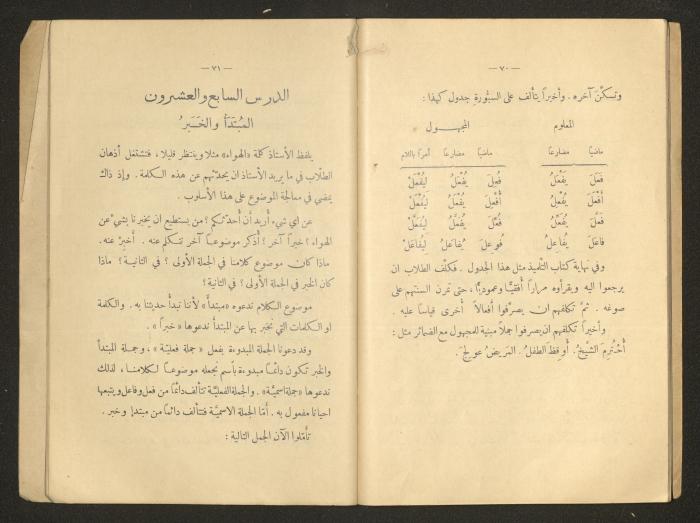 — ٧٠ —
وتسكّن آخره . وأخيراً يتألف على السبّورة جدول كهذا :
المعلوم المجهول
ماضياً مضارعاً ماضياً مضارعاً أمراً باللام
فَعَلَ يَفْعَلُ فُعِلَ يُفْعَلُ لِيُفْعَلْ
أَفْعَلَ يُفْعِلُ أُفْعِلَ يُفْعَلُ لِيُفْعَلْ
فَعَّلَ يُفَعِّلُ فُعِّلَ يُفَعَّلُ لِيُفَعَّلْ
فاعَلَ يُفاعِلُ فُوعِلَ يُفاعَلُ لِيُفاعَلْ
وفي نهاية كتاب التلميذ مثل هذا الجدول . فكلّف الطلاب ان
يرجعوا اليه ويقرأوه مراراً أفقيّاً وعموديّاً ، حتى تمرن السنتهم على
صوغه . ثمّ تكلفهم ان يصرّفوا أفعالاً أخرى قياساً عليه .
وأخيراً تكلفهم ان يصرفوا جملاً مبنية للمجهول مع الضمائر مثل :
أُحْتُرِمَ الشّيْخُ . أُوقِظَ الطفلُ . المَريضُ عولِجَ .
— ٧١ —
الدرس السابع والعشرون
المُبْتَدَأُ والخَبَرُ
يلفظ الأستاذ كلمة «الهواء» مثلا وينتظر قليلا ، فتشتغل أذهان
الطلاّب في ما يريد الأستاذ ان يحدّثهم عن هذه الكلمة . وإذ ذاك
يمضي في معالجة الموضوع على هذا الأسلوب .
عن اي شيء أريد أن أحدثكم ؟ من يستطيع ان يخبرنا بشيء عن
الهواء ؟ خبراً آخر ؟ أذكر موضوعاً آخر نتكلم عنه . أخبرْ عنه .
ماذا كان موضوع كلامنا في الجملة الأولى ؟ في الثانية ؟ ماذا
كان الخبر في الجملة الأولى ؟ في الثانية ؟
موضوع الكلام ندعوه «مبتدأ» لأننا نبدأ حديثنا به . والكلمة
او الكلمات التي نخبر بها عن المبتدأ ندعوها «خبراً» .
وقد دعونا الجملة المبدوءة بفعل «جملة فعليّة» ، وجملة المبتدأ
والخبر تكون دائماً مبدوءة باسم نجعله موضوعاً لكلامنا ، لذلك
ندعوها «جملة اسميّة» . والجملة الفعليّة تتألف دائماً من فعل وفاعل ويتبعها
احيانا مفعول به . أمّا الجملة الاسميّة فتتألف دائماً من مبتدإ وخبر .
تأمّلوا الآن الجمل التالية :